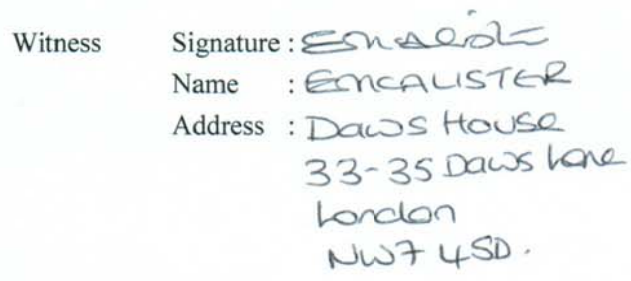 Witness Signature :
Name : EMCALISTER
Address : Daws House
33-35 Daws Lane
London
NW7 4SD.